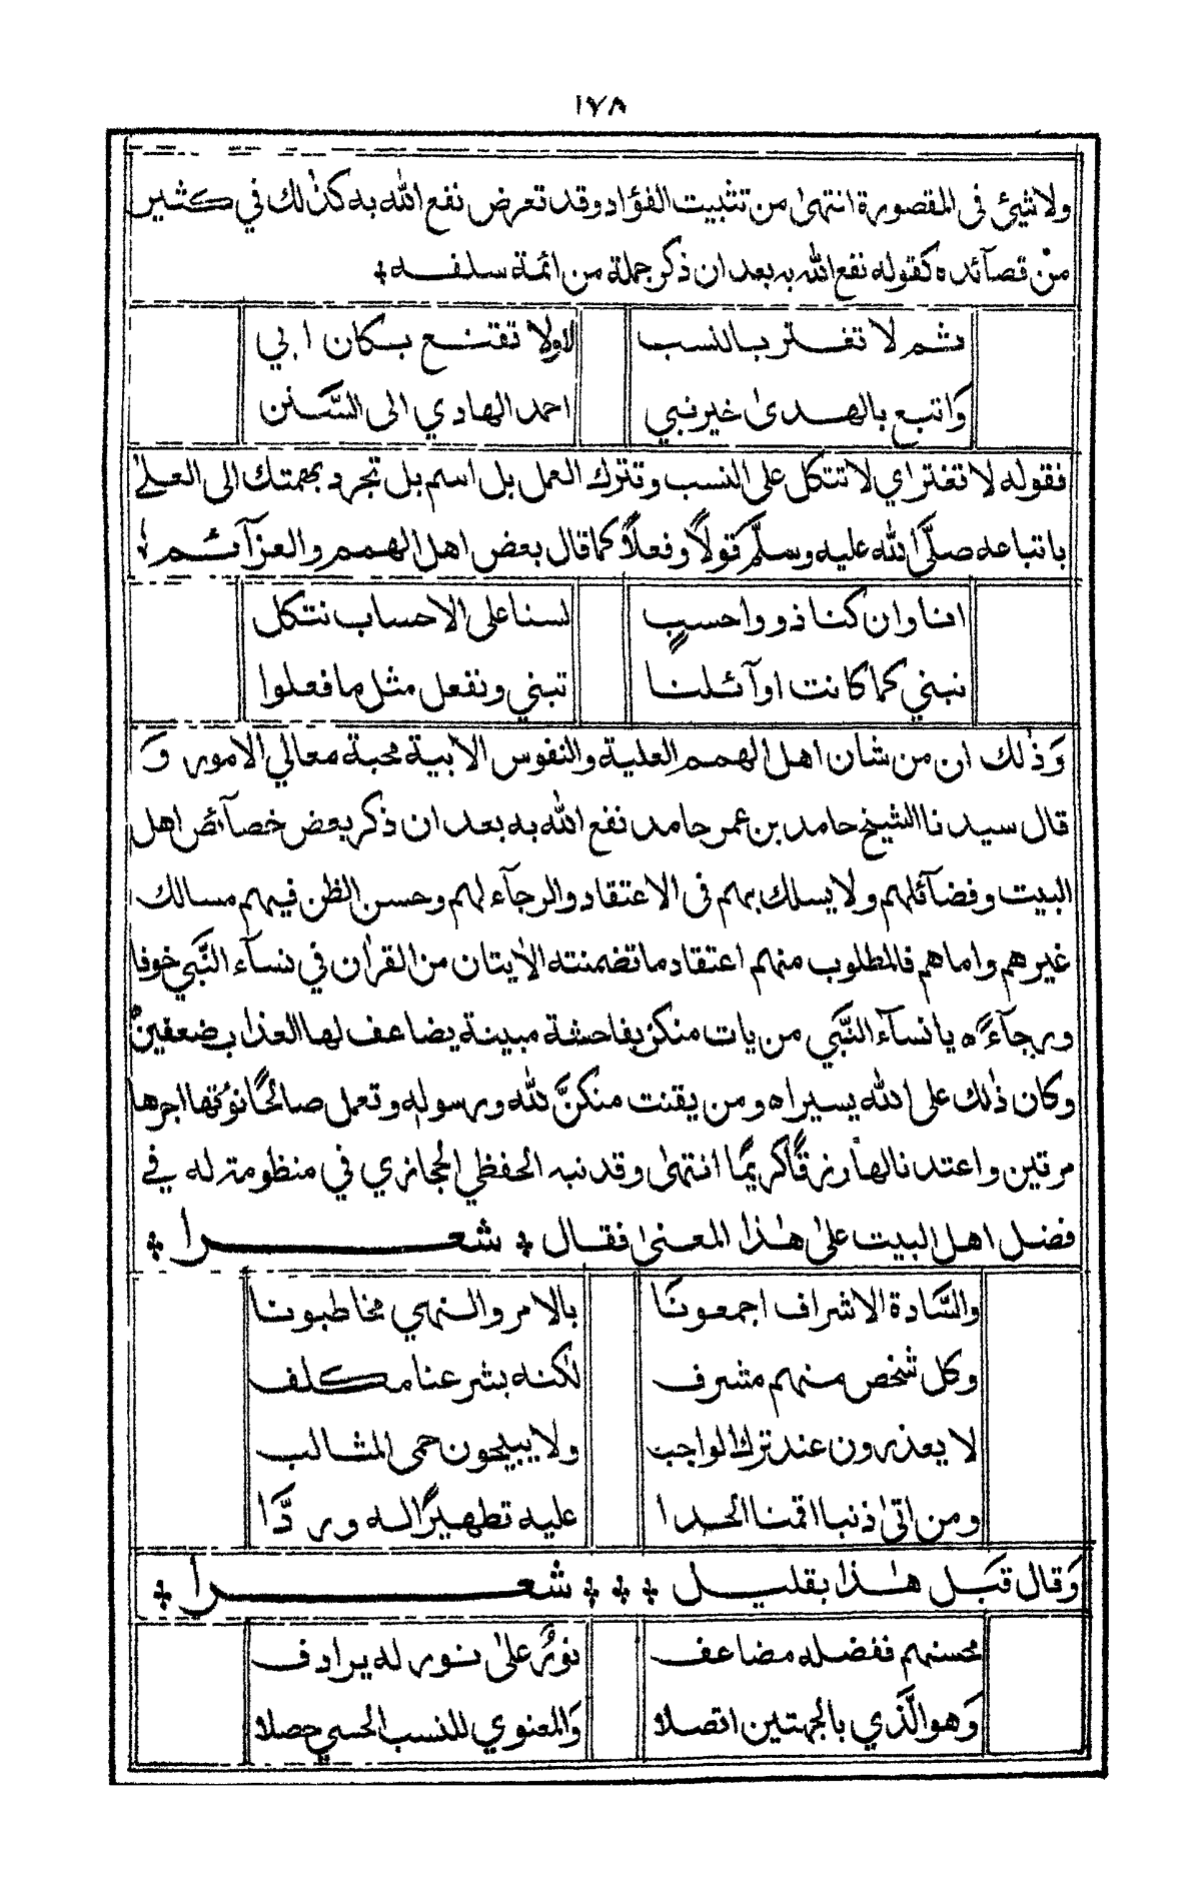 ١٧٨
ولا شيئ في المقصورة انتهى من تثبيت الفؤاد وقد تعرض نفع الله به كذلك في كثير
من قصآئده كقوله نفع الله به بعد ان ذكر جملة من ائمة سلفه
ثم لا تغتر بالنسب لا ولا تقنع بكان ابي
وَاتبع بالهدى خير نبي احمد الهادي الى السَّنن
فقوله لا تغتر اي لا تتكل على النسب وتترك العمل بل اسم بل تجرد بهمتك الى العلى
باتباعه صلَّى الله عليه وسلَّم قولاً وفعلاً كما قال بعض اهل الهمم والعزآئم
انا وان كنا ذووا حسبٍ لسنا على الاحساب نتكل
نبني كما كانت اوآئلنا تبني ونفعل مثل ما فعلوا
وَذلك ان من شان اهل الهمم العلية والنفوس الابية محبة معالي الامور وَ
قال سيدنا الشيخ حامد بن عمر حامد نفع الله به بعد ان ذكر بعض خصآئص اهل
البيت وفضآئلهم ولا يسلك بهم في الاعتقاد والرجآء لهم وحسن الظن فيهم مسالك
غيرهم واما هم فالمطلوب منهم اعتقاد ما تضمنته الايتان من القران في نسآء النَّبي خوفا
ورجآءً ه يا نسآء النَّبي من يات منكن بفاحشة مبينة يضاعف لها العذاب ضعفين
وكان ذلك على الله يسيرا ه ومن يقنت منكنَّ لله ورسوله وتعمل صالحًا نؤتها اجرها
مرتين واعتدنا لها رزقًا كريمًا انتهى وقد نبه الحفظي الحجازي في منظومة له في
فضل اهل البيت على هذا المعنى فقال شعرا
والسَّادة الاشراف اجمعونَا بالامر والنهي مخاطبونا
وكل شخص منهم مشرف لكنه بشرعنا مكلف
لا يعذرون عند ترك الواجب ولا يبيحون حمى المثالب
ومن اتى ذنبا اقمنا الحدا عليه تطهيرًا له وردَّا
وَقال قبَل هذا بقليل شعرا
محسنهم ففضله مضاعف نورٌ على نور له يرادف
وَهو الَّذي بالجهتين اتصلا وَالمعنوي للنسب الحسي حصلا